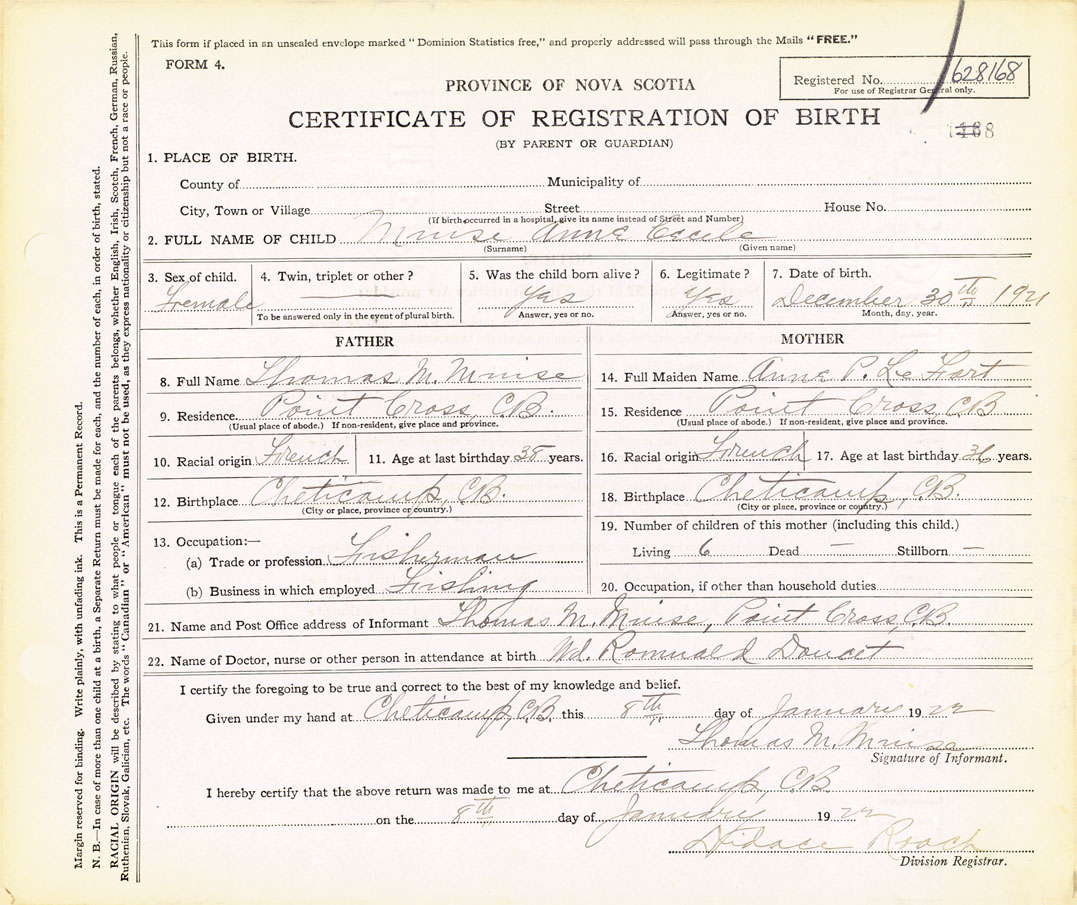 This form if placed in an unsealed envelope marked "Dominion Statistics free," and properly addressed will pass through the Mails "FREE."
FORM 4.
Registered No. 628168
For use of Registrar General only.
PROVINCE OF NOVA SCOTIA
CERTIFICATE OF REGISTRATION OF BIRTH
(BY PARENT OR GUARDIAN)
1. PLACE OF BIRTH.
County of Municipality of
City, Town or Village Street House No.
(If birth occurred in a hospital, give its name instead of Street and Number)
2. FULL NAME OF CHILD Muise Anne Cecile
(Surname) (Given name)
3. Sex of child. 4. Twin, triplet or other? 5. Was the child born alive? 6. Legitimate? 7. Date of birth.
Female — Yes Yes December 30th 1921
To be answered only in the event of plural birth. Answer, yes or no. Answer, yes or no. Month, day, year.
FATHER
8. Full Name Thomas M. Muise
9. Residence. Point Cross, C.B.
(Usual place of abode.) If non-resident, give place and province.
10. Racial origin French 11. Age at last birthday 38 years.
12. Birthplace Cheticamp, C.B.
(City or place, province or country.)
13. Occupation:—
(a) Trade or profession Fisherman
(b) Business in which employed Fishing
MOTHER
14. Full Maiden Name Anne P. Le Fort
15. Residence Point Cross, C.B
(Usual place of abode.) If non-resident, give place and province.
16. Racial origin French 17. Age at last birthday 36 years.
18. Birthplace Cheticamp, C.B.
(City or place, province or country.)
19. Number of children of this mother (including this child.)
Living 6 Dead — Stillborn —
20. Occupation, if other than household duties
21. Name and Post Office address of Informant Thomas M. Muise, Point Cross, C.B.
22. Name of Doctor, nurse or other person in attendance at birth Wd. Romuald Doucet
I certify the foregoing to be true and correct to the best of my knowledge and belief.
Given under my hand at Cheticamp, C.B. this 8th day of Januarie 1922
Thomas M. Muise
Signature of Informant.
I hereby certify that the above return was made to me at Cheticamp, C.B
on the 8th day of Januarie 1922
Didace Roach
Division Registrar.
Margin reserved for binding. Write plainly, with unfading ink. This is a Permanent Record.
N. B.—In case of more than one child at a birth, a Separate Return must be made for each, and the number of each, in order of birth, stated.
RACIAL ORIGIN will be described by stating to what people or tongue each of the parents belongs, whether English, Irish, Scotch, French, German, Russian,
Ruthenian, Slovak, Galician, etc. The words "Canadian" or "American" must not be used, as they express nationality or citizenship but not a race or people.